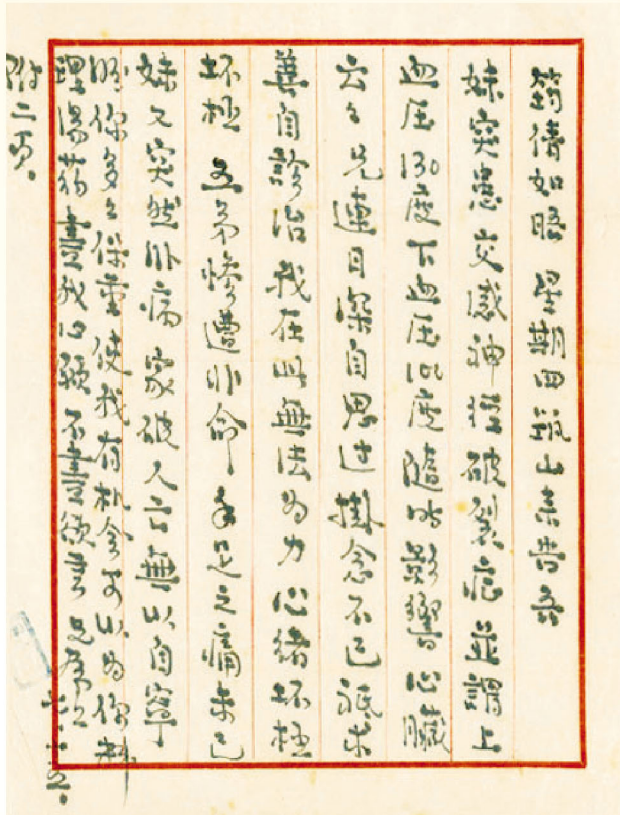 倩如晤 星期四 山来告吾
妹突患交感神經破裂症並謂上
血压130度下血压100度隨时影響心臟
云云 兄連日深自思过 掛念不已 祇求
善自診治 我在此無法为力 心緒坏极
坏极 五弟慘遭非命 手足之痛未已
妹又突然卧病 家破人亡 無以自寧
盼你多多保重 使我有机会可以为你料
理湯药 盡我心願 不盡欲言 兄
附二页。